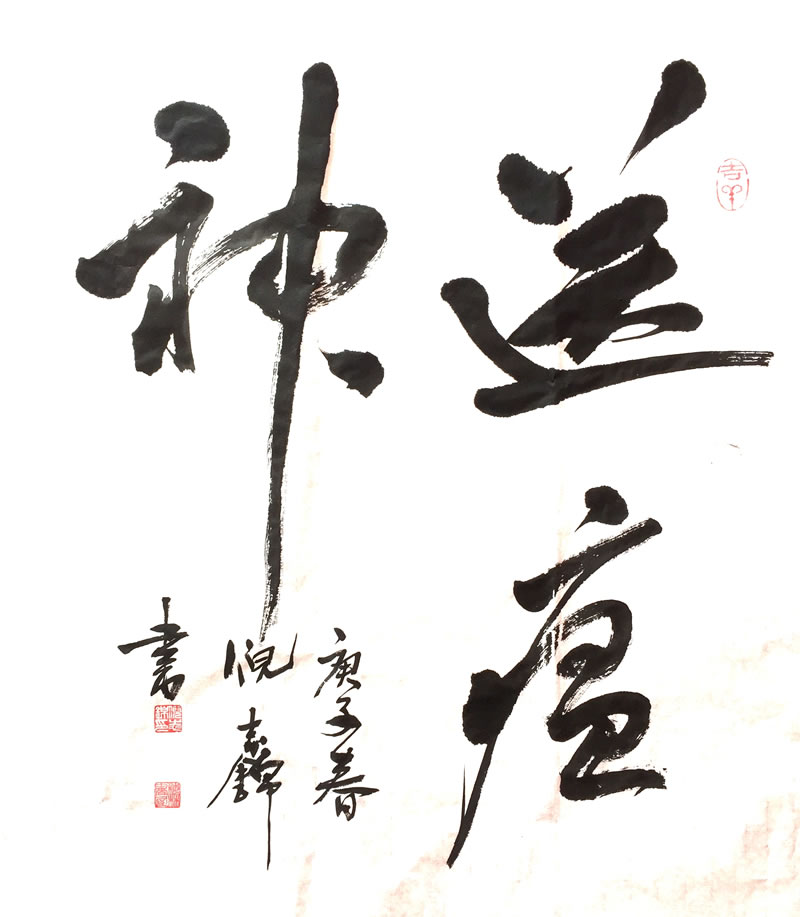 送瘟
神
庚子春
倪志錦
書